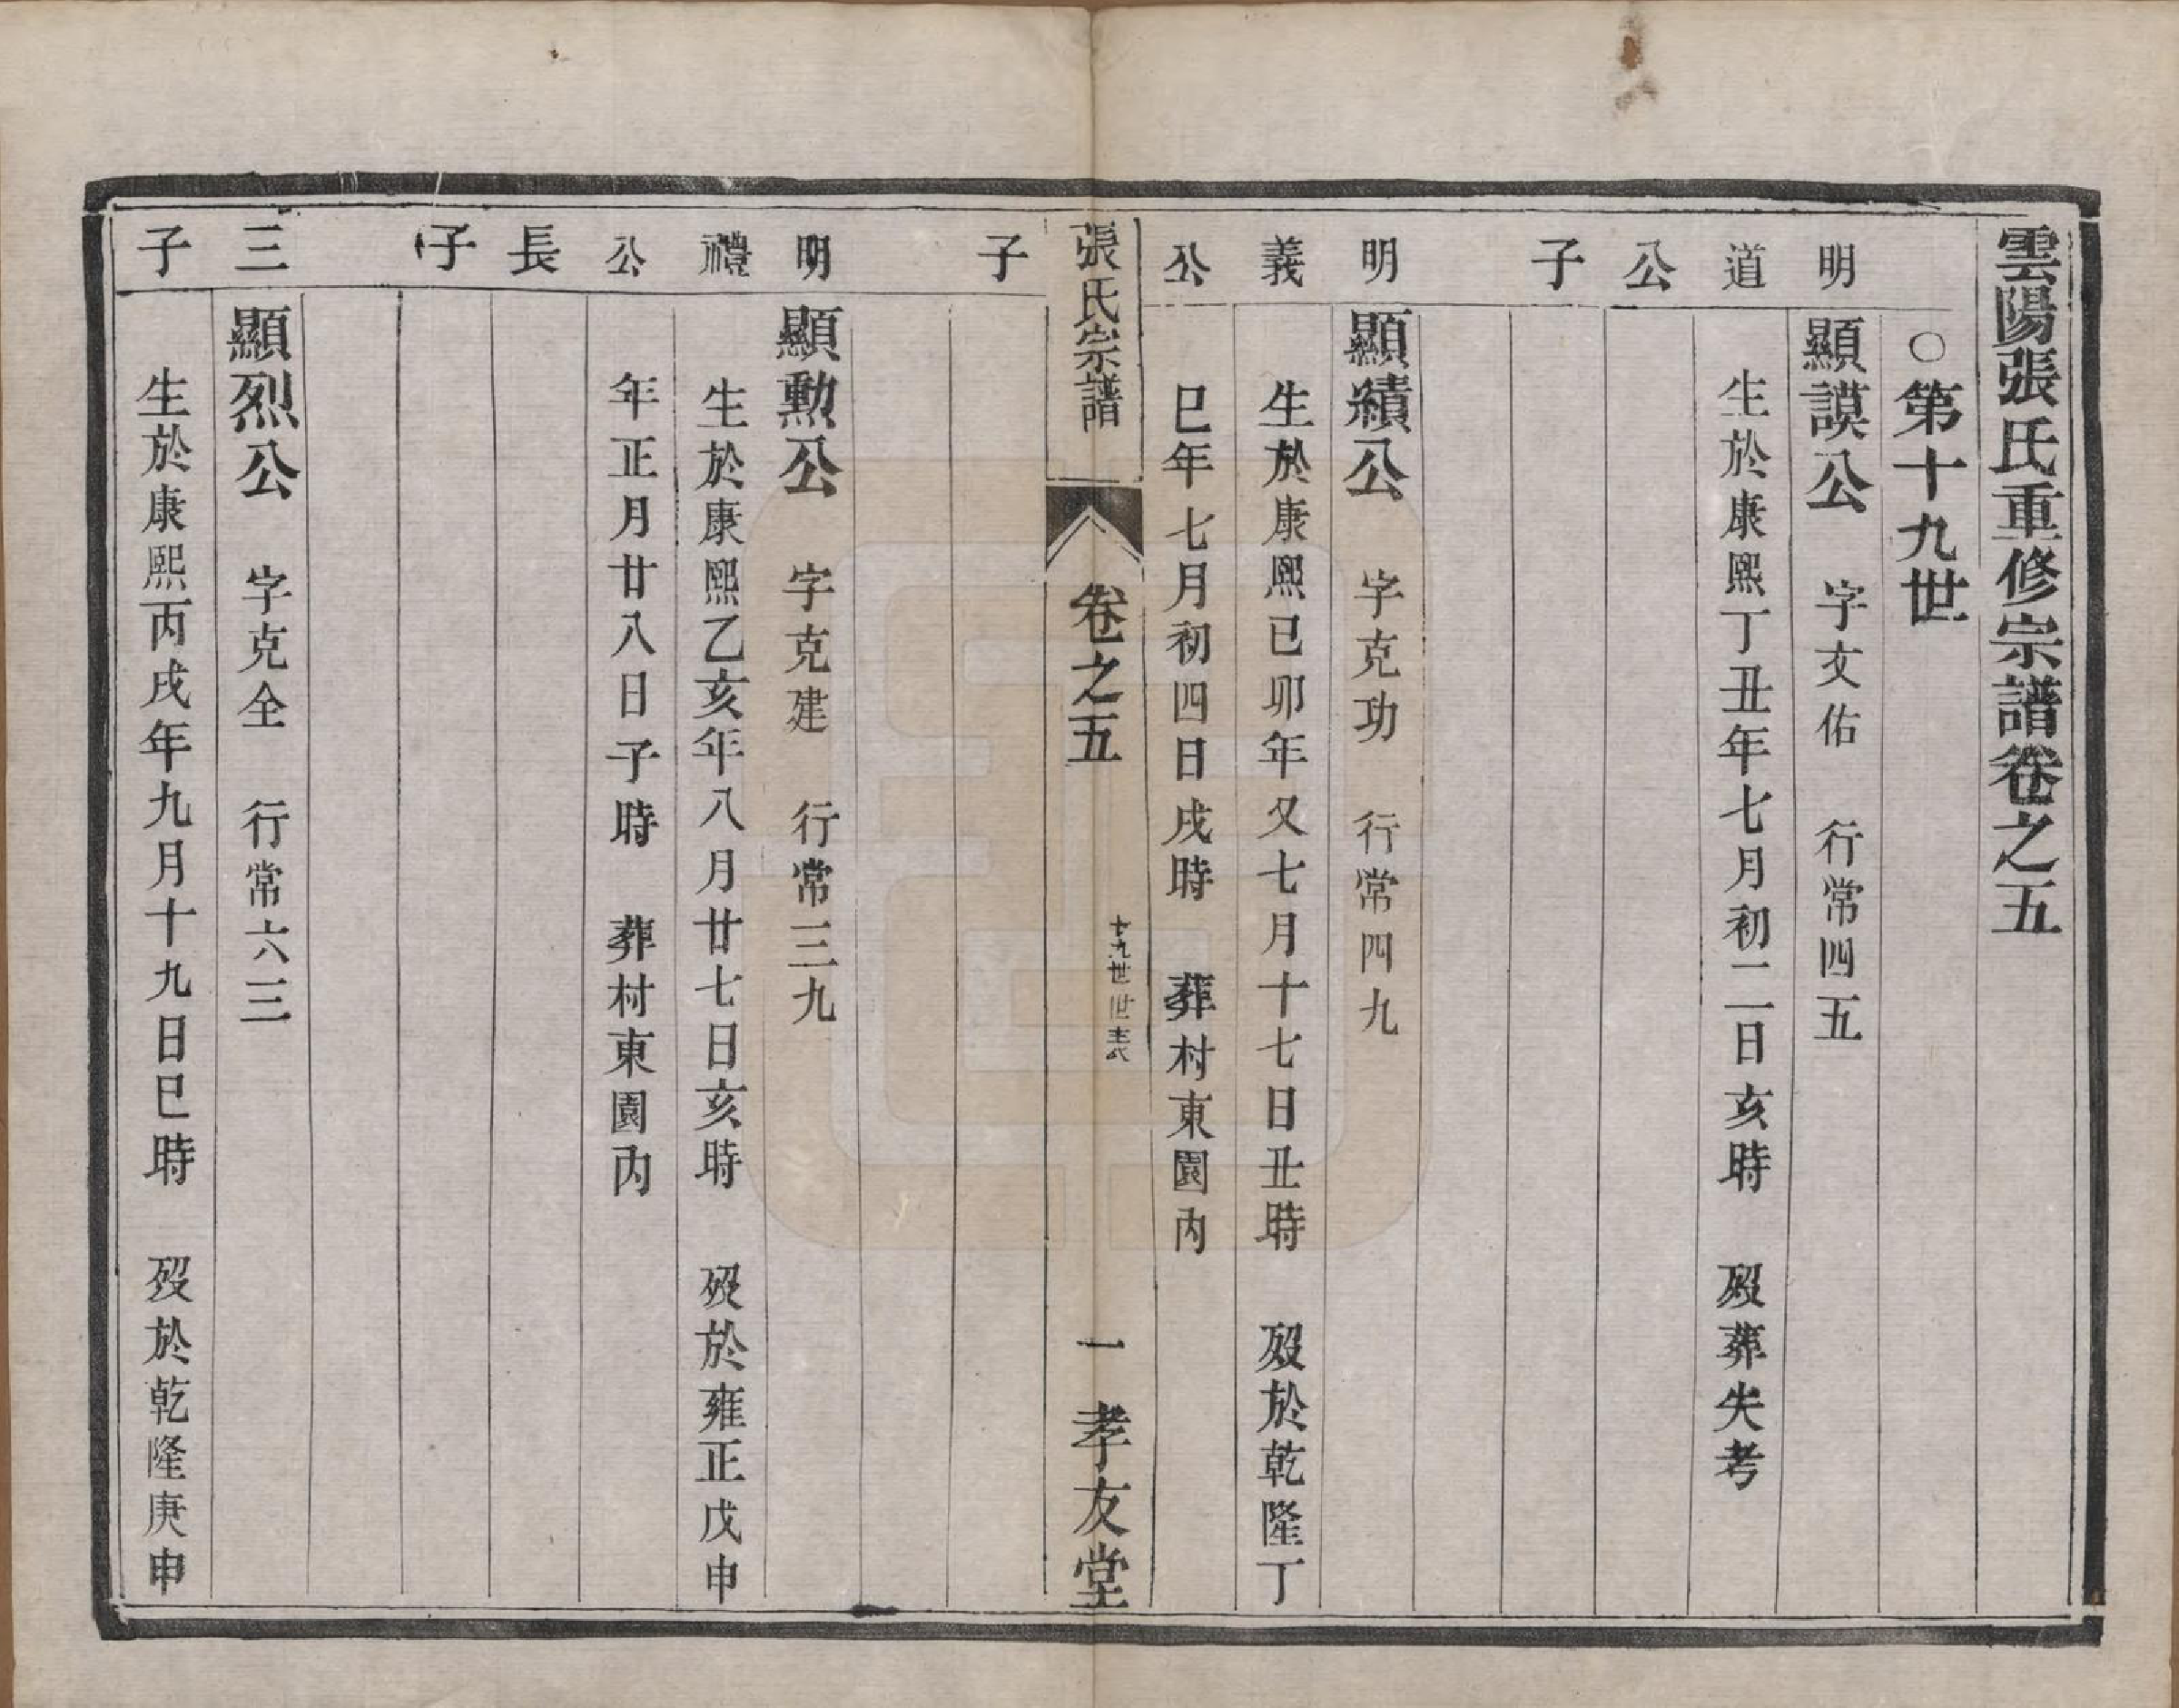 雲陽張氏重修宗譜卷之五
○第十九世
明道公子
顯謨公 字文佑 行常四五
生於康熙丁丑年七月初二日亥時 歿葬失考
明義公子
顯績公 字克功 行常四九
生於康熙已卯年又七月十七日丑時 歿於乾隆丁
巳年七月初四日戌時 葬村東園內
張氏宗譜 卷之五 十九世世表 一 孝友堂
明禮公長子
顯勲公 字克建 行常三九
生於康熙乙亥年八月廿七日亥時 歿於雍正戊申
年正月廿八日子時 葬村東園內
三子
顯烈公 字克全 行常六三
生於康熙丙戌年九月十九日巳時 歿於乾隆庚申